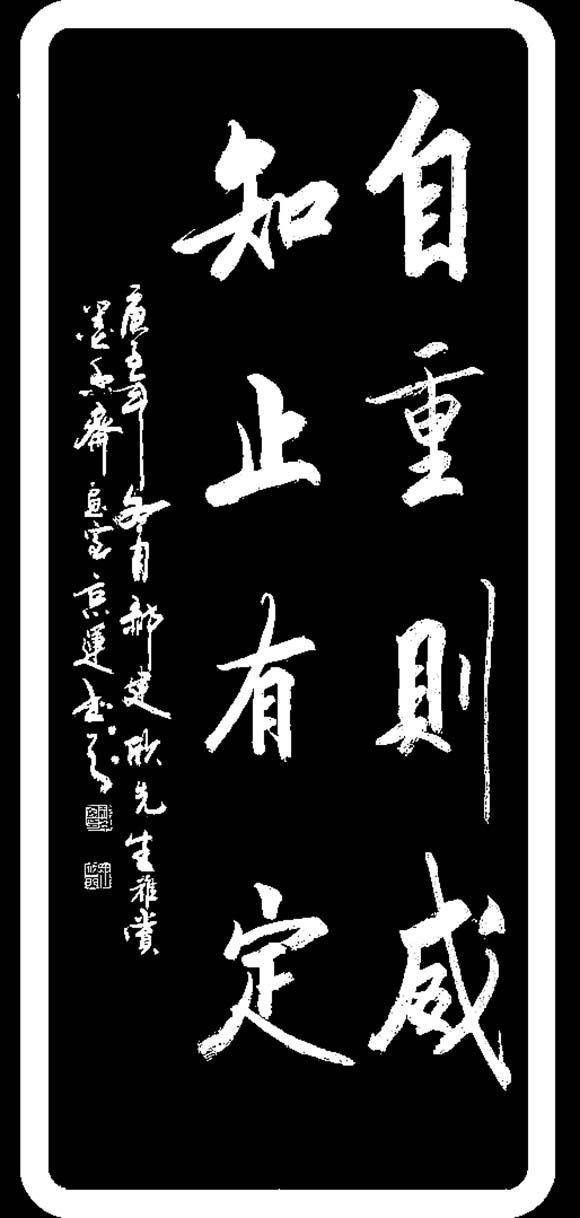 自重則威
知止有定
庚子年冬月郝建耿先生雅賞
墨香齋主宮京運书